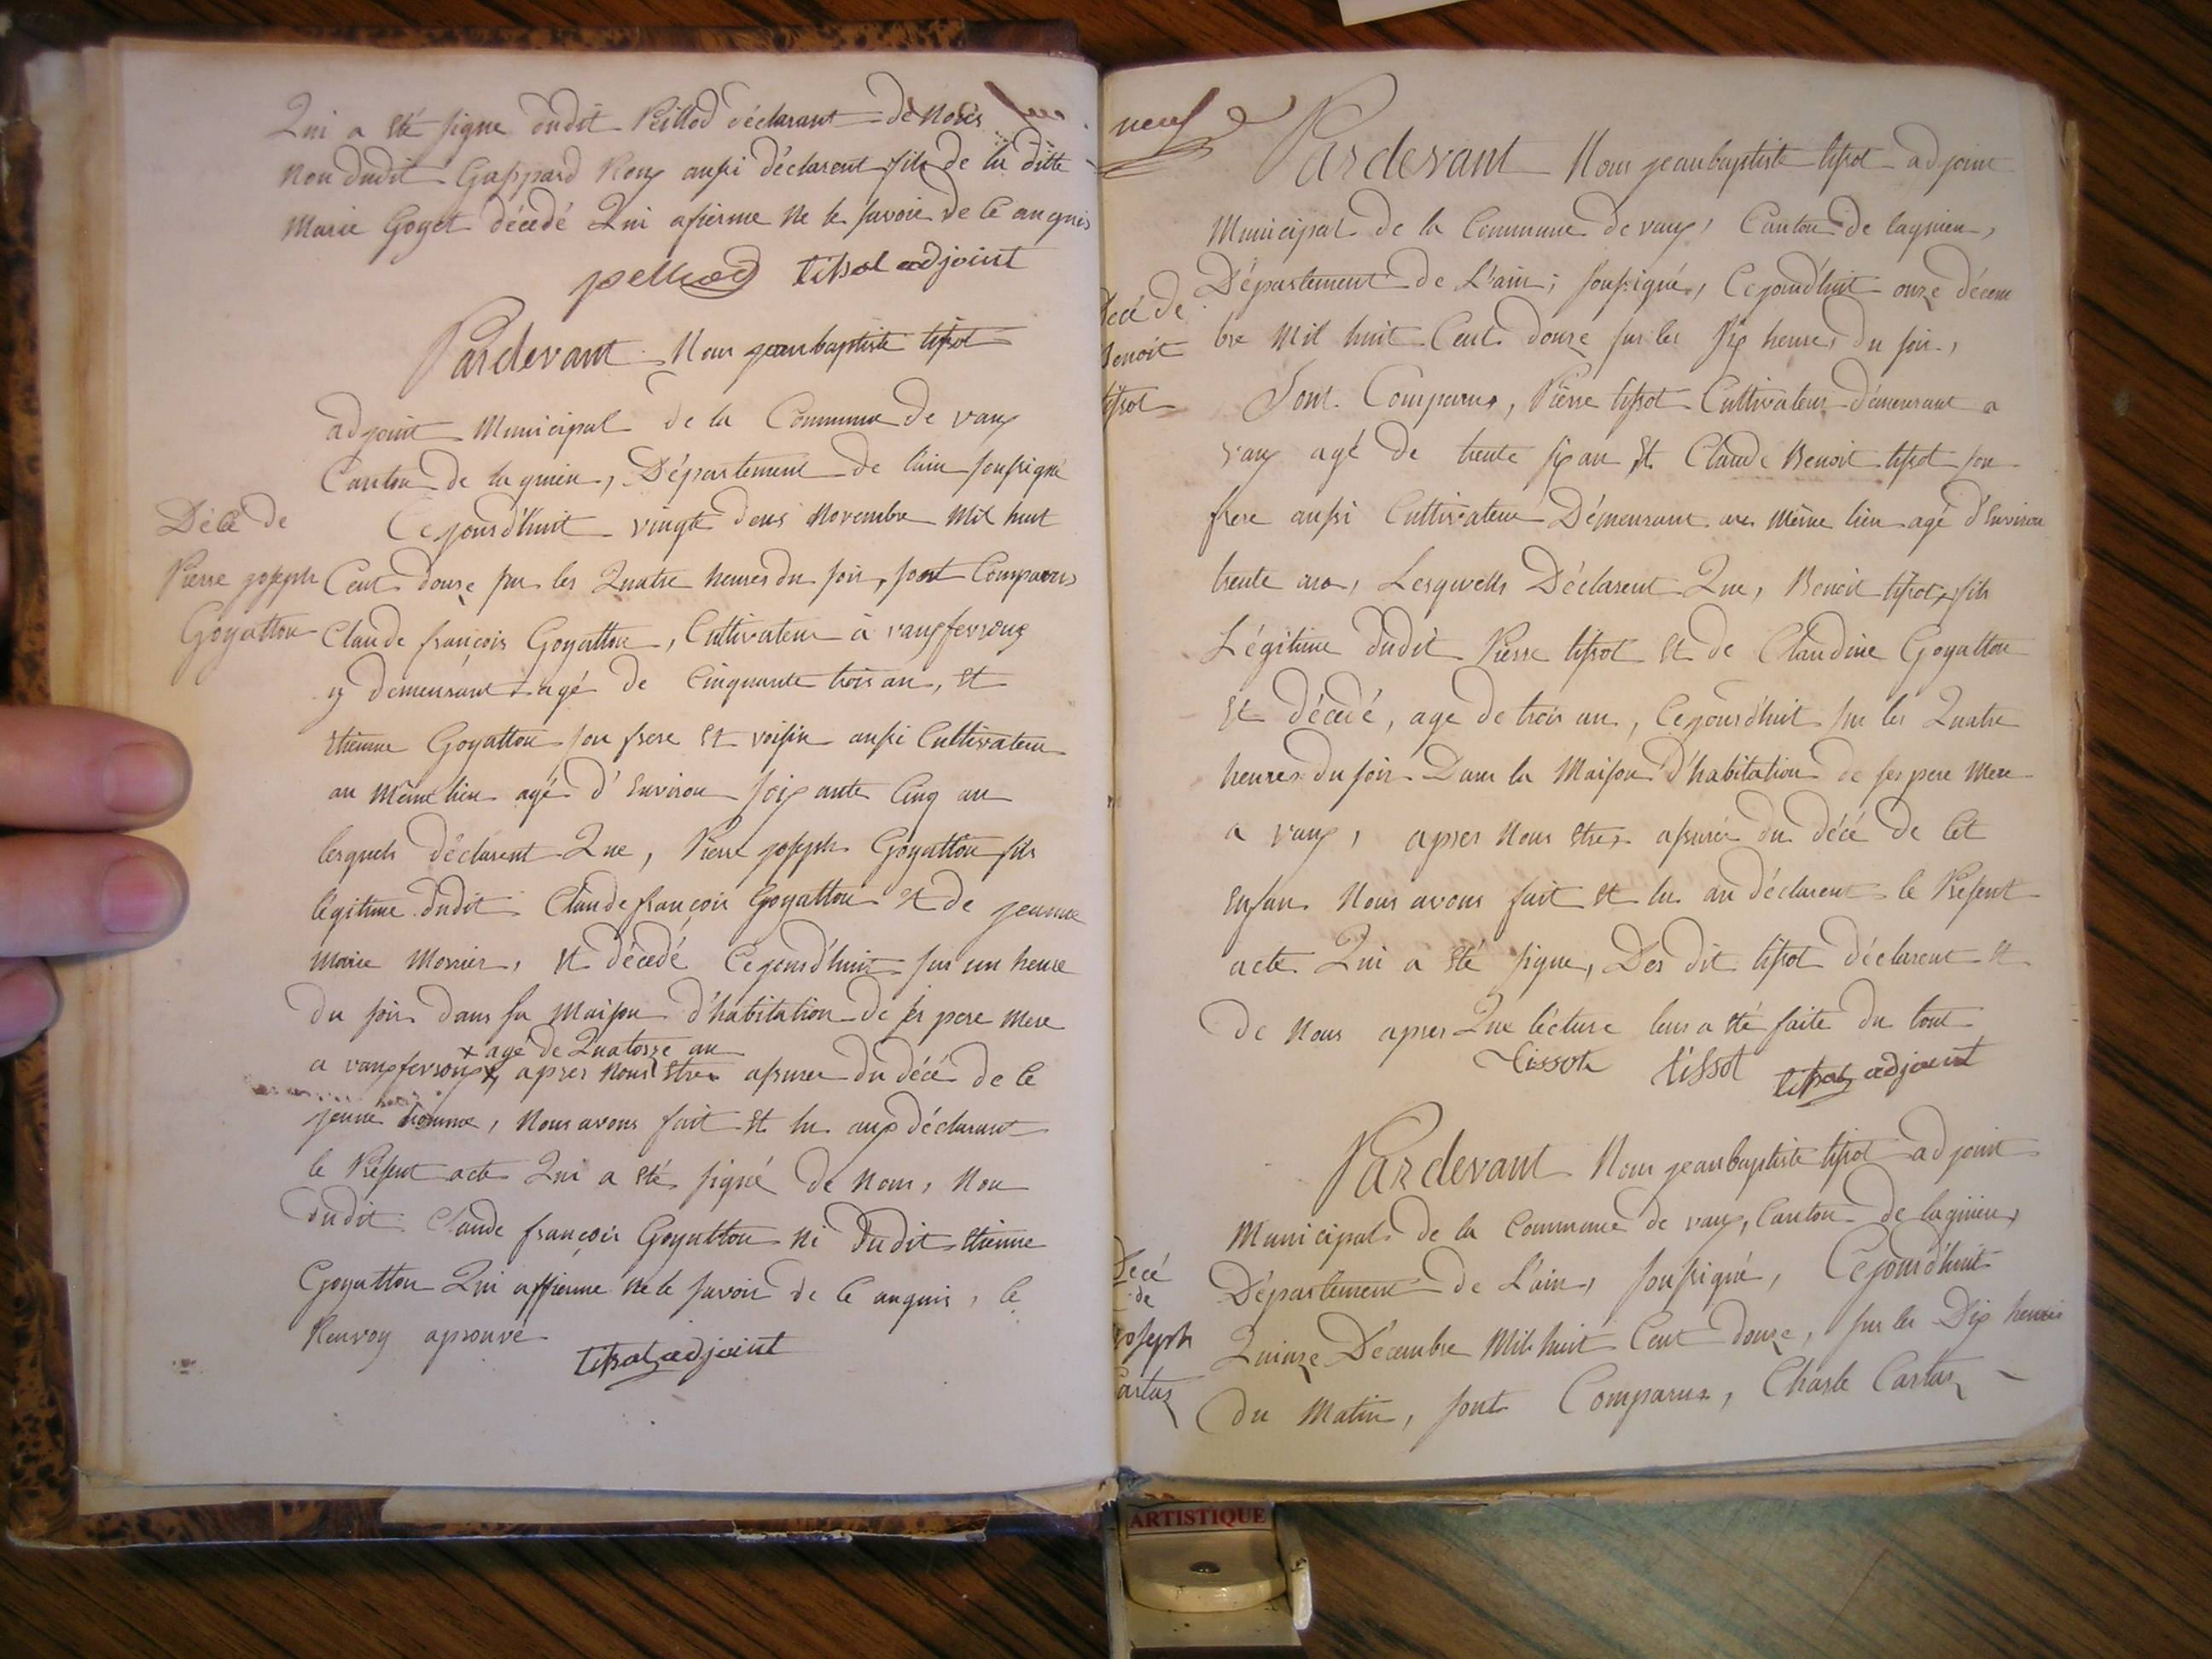 Qui a été signe dudit Peillod déclarant de Nous
Non dudit Gaspard Roux aussi déclarent fils de la ditte
Marie Goyet décedé Qui afierme Ne le savoir de ce anquis
peillod tissot adjoint
Pardevant Nous jeanbaptiste tissot
adjoint Municipal de la Commune de vaux
Canton de lagnieu, Département de lain soussigné
Décé de
Pierre joseph
Goyatton
Cejourd'huit vingte deus Novembre Mil huit
Cent douze sur les Quatre heures du soir, sont Comparus
Claude françois Goyatton, Cultivateur à vauxfevroux
y demeurant agé de Cinquante trois an, Et
Etienne Goyatton son frere Et voisin aussi Cultivateur
au Même lieu agé d'Environ soixante Cinq an
lesquels déclarent Que, Pierre joseph Goyatton fils
légitime dudit Claude françois Goyatton Et de jeanne
Marie Monier, Et décedé Cejourd'huit sur un heure
du soir dans sa Maison d'habitation de ses pere Mere
x agé de Quatorze an
a vauxfevroux x, apres Nous Etre assurer du décé de Ce
jeune homme, Nous avons fait Et lu aux déclarant
le Présent acte Qui a Eté signé de Nous, Non
dudit Claude françois Goyatton Ni dudit Etienne
Goyatton Qui affierme Ne le savoir de Ce anquis, le
Renvoy aprouvé
tissot adjoint
neuf
Pardevant Nous jeanbaptiste tissot adjoint
Municipal de la Commune de vaux, Canton de lagnieu,
Département de L'ain; soussigné, Cejourd'huit onze décem
bre Mil huit Cent douze sur les six heures du soir,
Décé de
Benoit
tissot
Sont Comparus, Pierre tissot Cultivateur démeurant a
vaux agé de trente six an Et Claude Benoit tissot son
frere aussi Cultivateur Démeurant au Même lieu agé d'Environ
trente ans, Lesquells Déclarent Que, Benoit tissot, fils
Légitime dudit Pierre tissot Et de Claudine Goyatton
Et décedé, age de trois an, Cejourd'huit sur les Quatre
heures du soir Dans la Maison d'habitation de ses pere Mere
a vaux, apres Nous Etre assurer du décé de Cet
Enfan Nous avons fait Et lu au déclarent le Présent
acte Qui a Eté signe, Des dit tissot déclarent Et
de Nous apres Que lécture leur a Eté faite du tout
Tissot tissot tissot adjoint
Pardevant Nous jeanbaptiste tissot adjoint
Municipal de la Commune de vaux, Canton de lagnieu,
Département de L'ain, soussigné, Cejourd'huit
Quinze Décembre Mil huit Cent douze, sur les Dix heures
du Matin, sont Comparus, Charle Cartaz
Decé
de
joseph
Cartaz
ARTISTIQUE